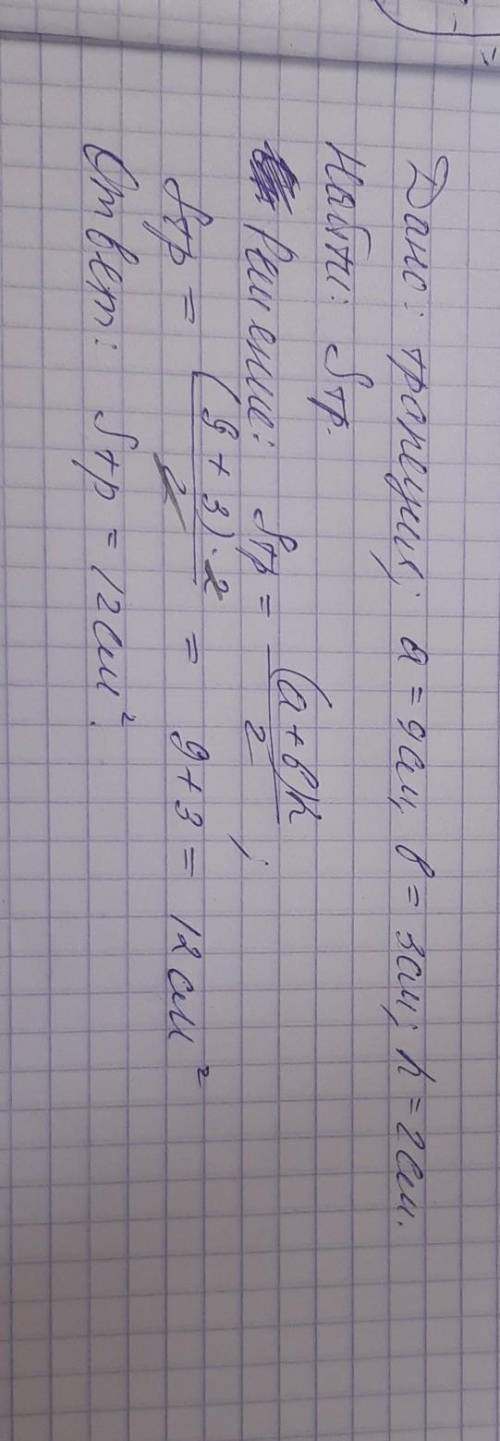 Дано: трапеция; a = 9 см, в = 3 см; h = 2 см.
Найти: Sтр.
Решение: Sтр = (a + в)h / 2 ;
Sтр = (9 + 3) · 2 / 2 = 9 + 3 = 12 см²
Ответ: Sтр = 12 см².